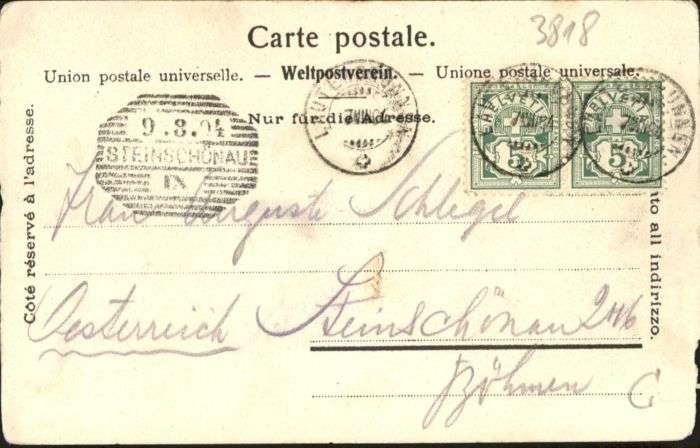 3818
Carte postale.
Union postale universelle. — Weltpostverein. — Unione postale universale.
Nur für die Adresse.
Côté réservé à l'adresse.
9.8.04
STEINSCHÖNAU
IX
HELVETIA
5
HELVETIA
5
Frau Auguste Schlegel
Oesterreich Steinschönau 246
Böhmen
to all indirizzo.